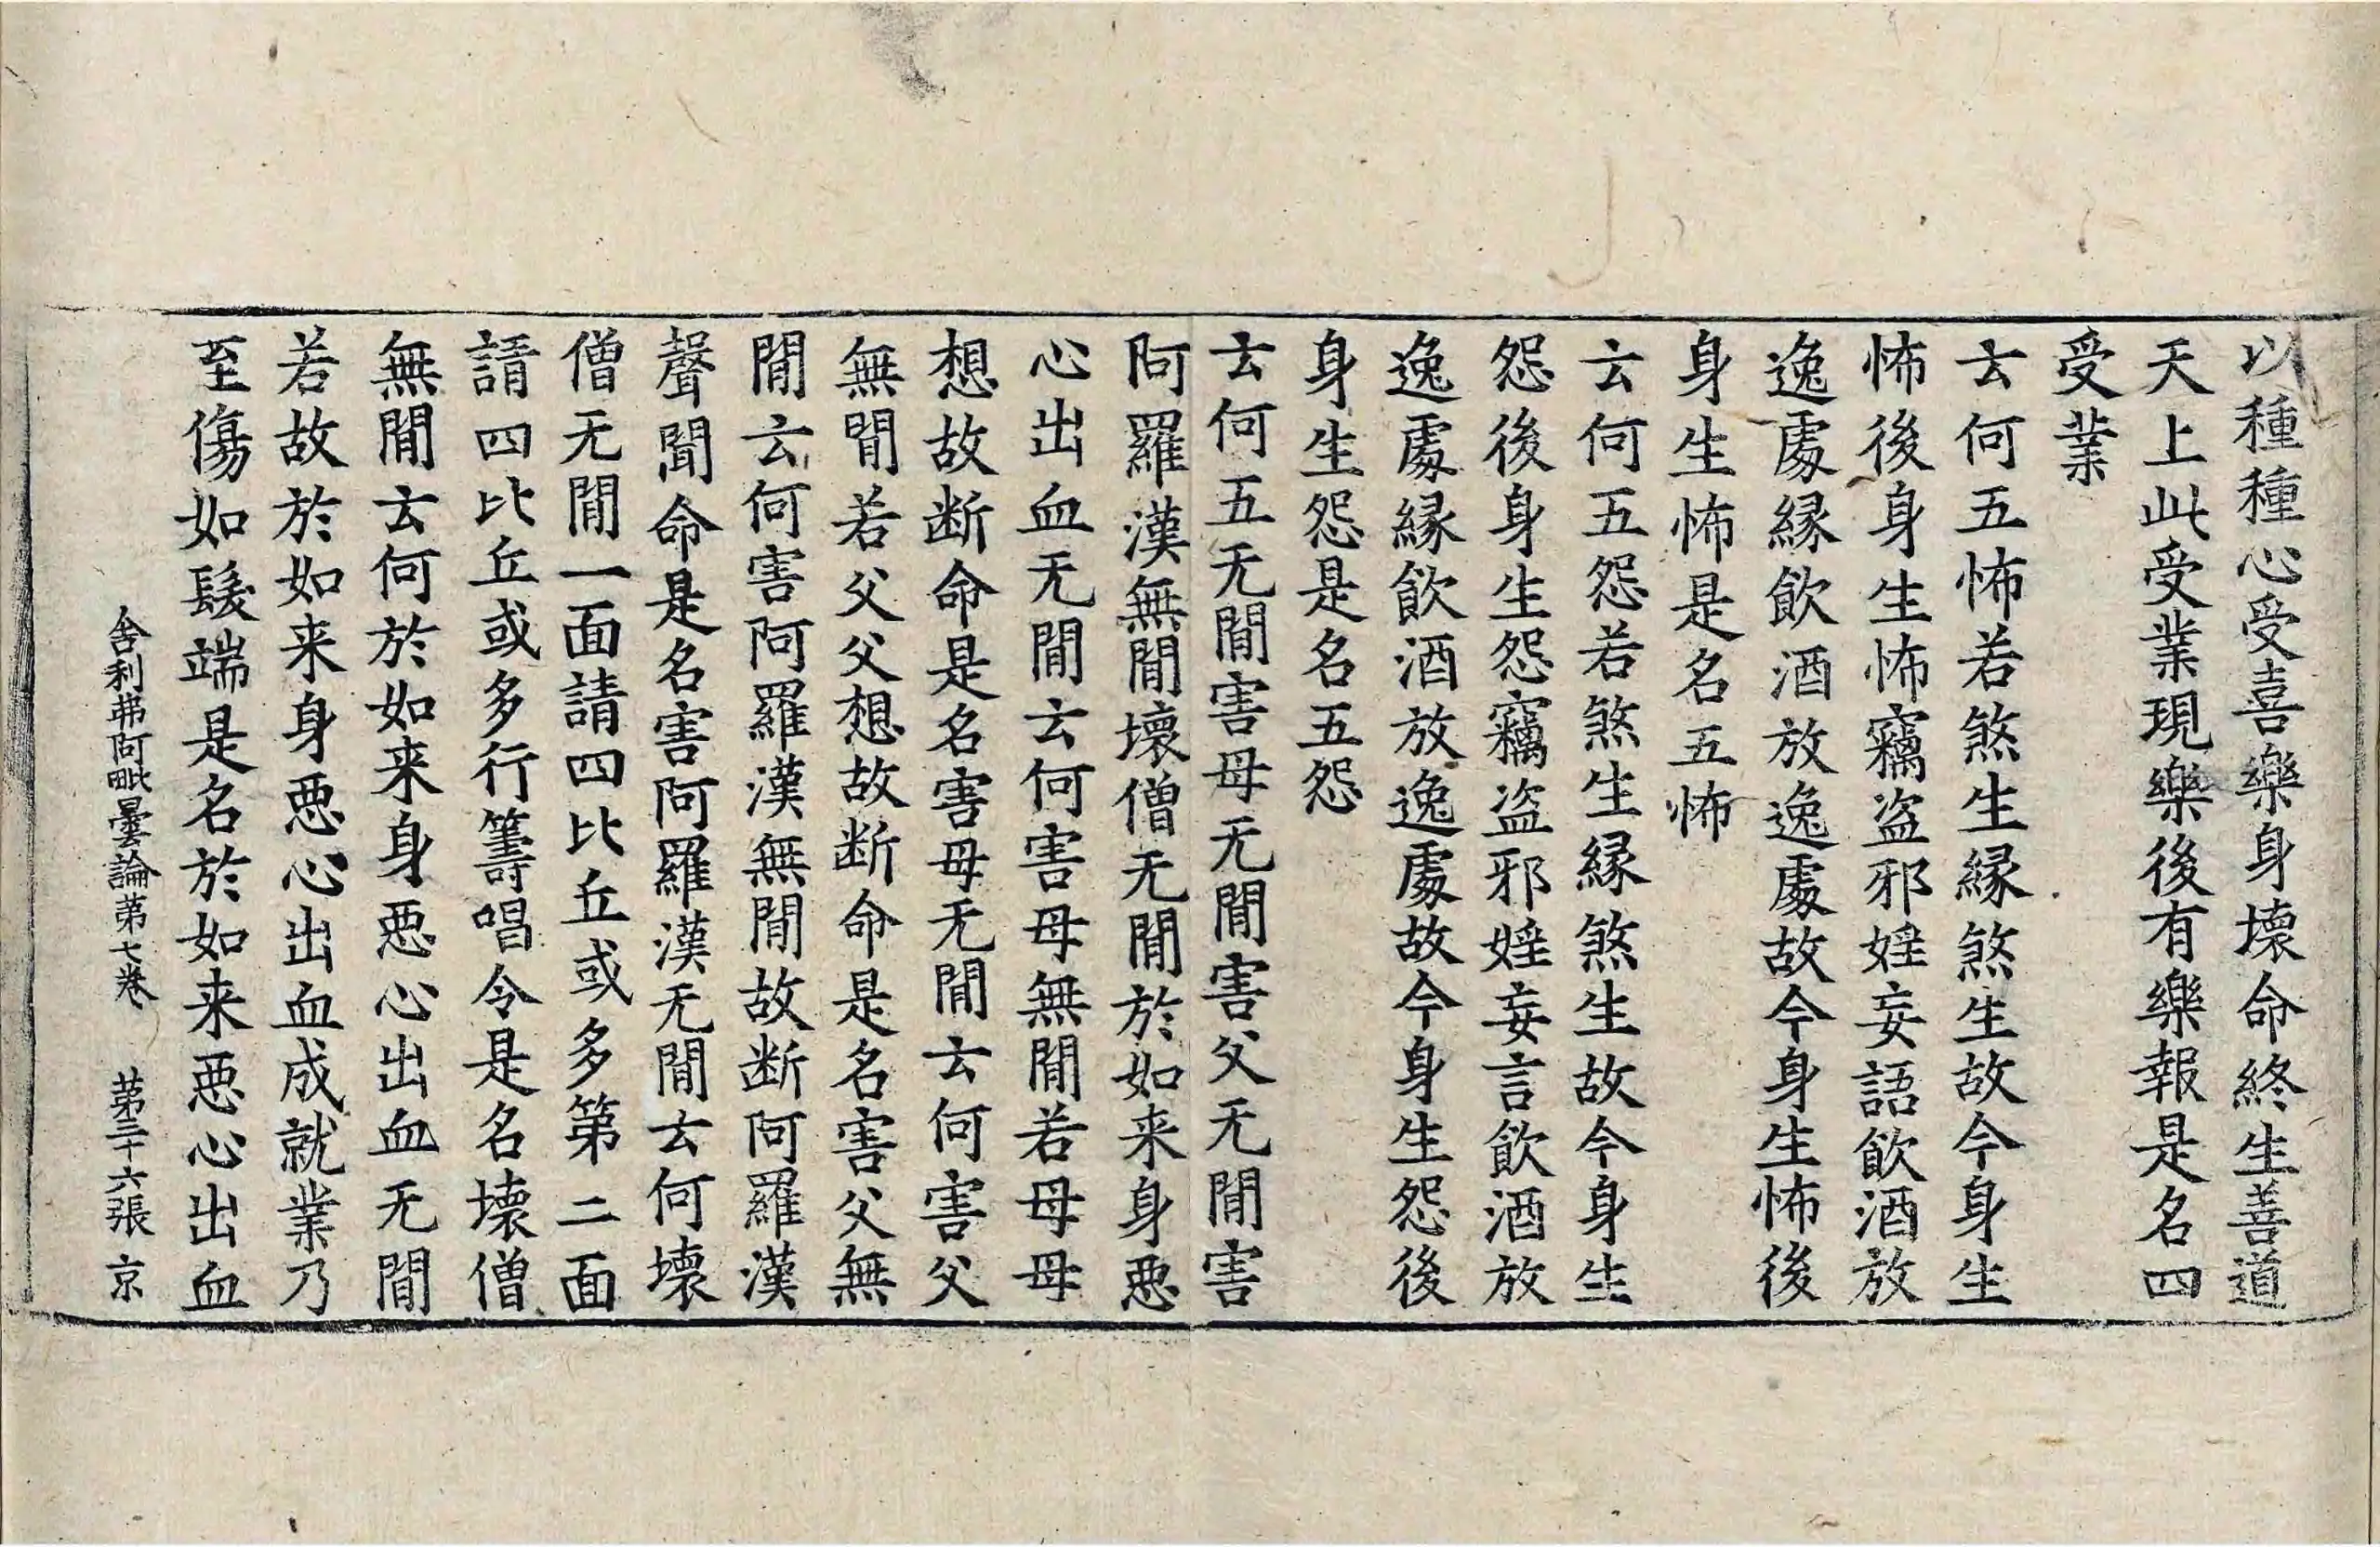 以種種心受喜樂身壞命終生善道
天上此受業現樂後有樂報是名四
受業
云何五怖若煞生縁煞生故今身生
怖後身生怖竊盗邪婬妄語飲酒放
逸處縁飲酒放逸處故今身生怖後
身生怖是名五怖
云何五怨若煞生縁煞生故今身生
怨後身生怨竊盗邪婬妄言飲酒放
逸處縁飲酒放逸處故今身生怨後
身生怨是名五怨
云何五无間害母无間害父无間害
阿羅漢無間壞僧无間於如来身惡
心出血无間云何害母無間若母母
想故断命是名害母无間云何害父
無間若父父想故断命是名害父無
間云何害阿羅漢無間故断阿羅漢
聲聞命是名害阿羅漢无間云何壊
僧无間一面請四比丘或多第二面
請四比丘或多行籌唱令是名壊僧
無間云何於如来身惡心出血无間
若故於如来身惡心出血成就業乃
至傷如髮端是名於如来惡心出血
舍利弗阿毗曇論第七卷 第三十六張 京